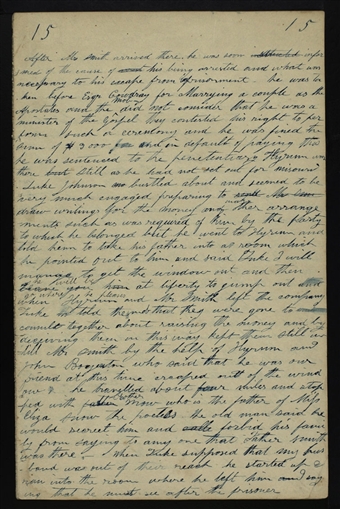 15 15
After Mr Smith arrived there he was soon infor
med of the cause of his being arrested and what was
necessary to his escape from imprisonment. he was ta
ken before Esqr Cowdray for Marrying a couple as the
Apostates and the did not consider that he was a
minister of the Gospel they contested his right to per
form such a ceremony and he was fined the
sum of $3000 and in default of paying this
he was sentenced to the penitentiary Hyrum was
there but still as he had not set out for missouri
Luke Johnson bustled about and seemed to be
very much engaged preparing to
draw writings Get money and other arrange
ments such as was required of him by the party
to which he belonged but he went to Hyrum and
told him to take his father into a room which
he pointed out to him and said Luke I will
manage to get the window out and then
he will be at liberty to jump out and
go where he please
when Hyrum and Mr Smith left the company
Luke told them that they were gone to
consult together about raising the money and by
deceiving them in this way kept them still
till Mr Smith by the help of Hyrum and
John Boynton who said that he was our
friend at this time crawled out of the wind
ow & travelled about four miles and stop
ped with Snow who is the father of Miss
Eliza Snow the the old man said he
would secreet him and forbid his fami
ly from saying to any one that Father Smith
was there — When Luke supposed that my hus
band was out of their reach he started up &
ran into the room where he left him say
ing that he must see after the prisoner